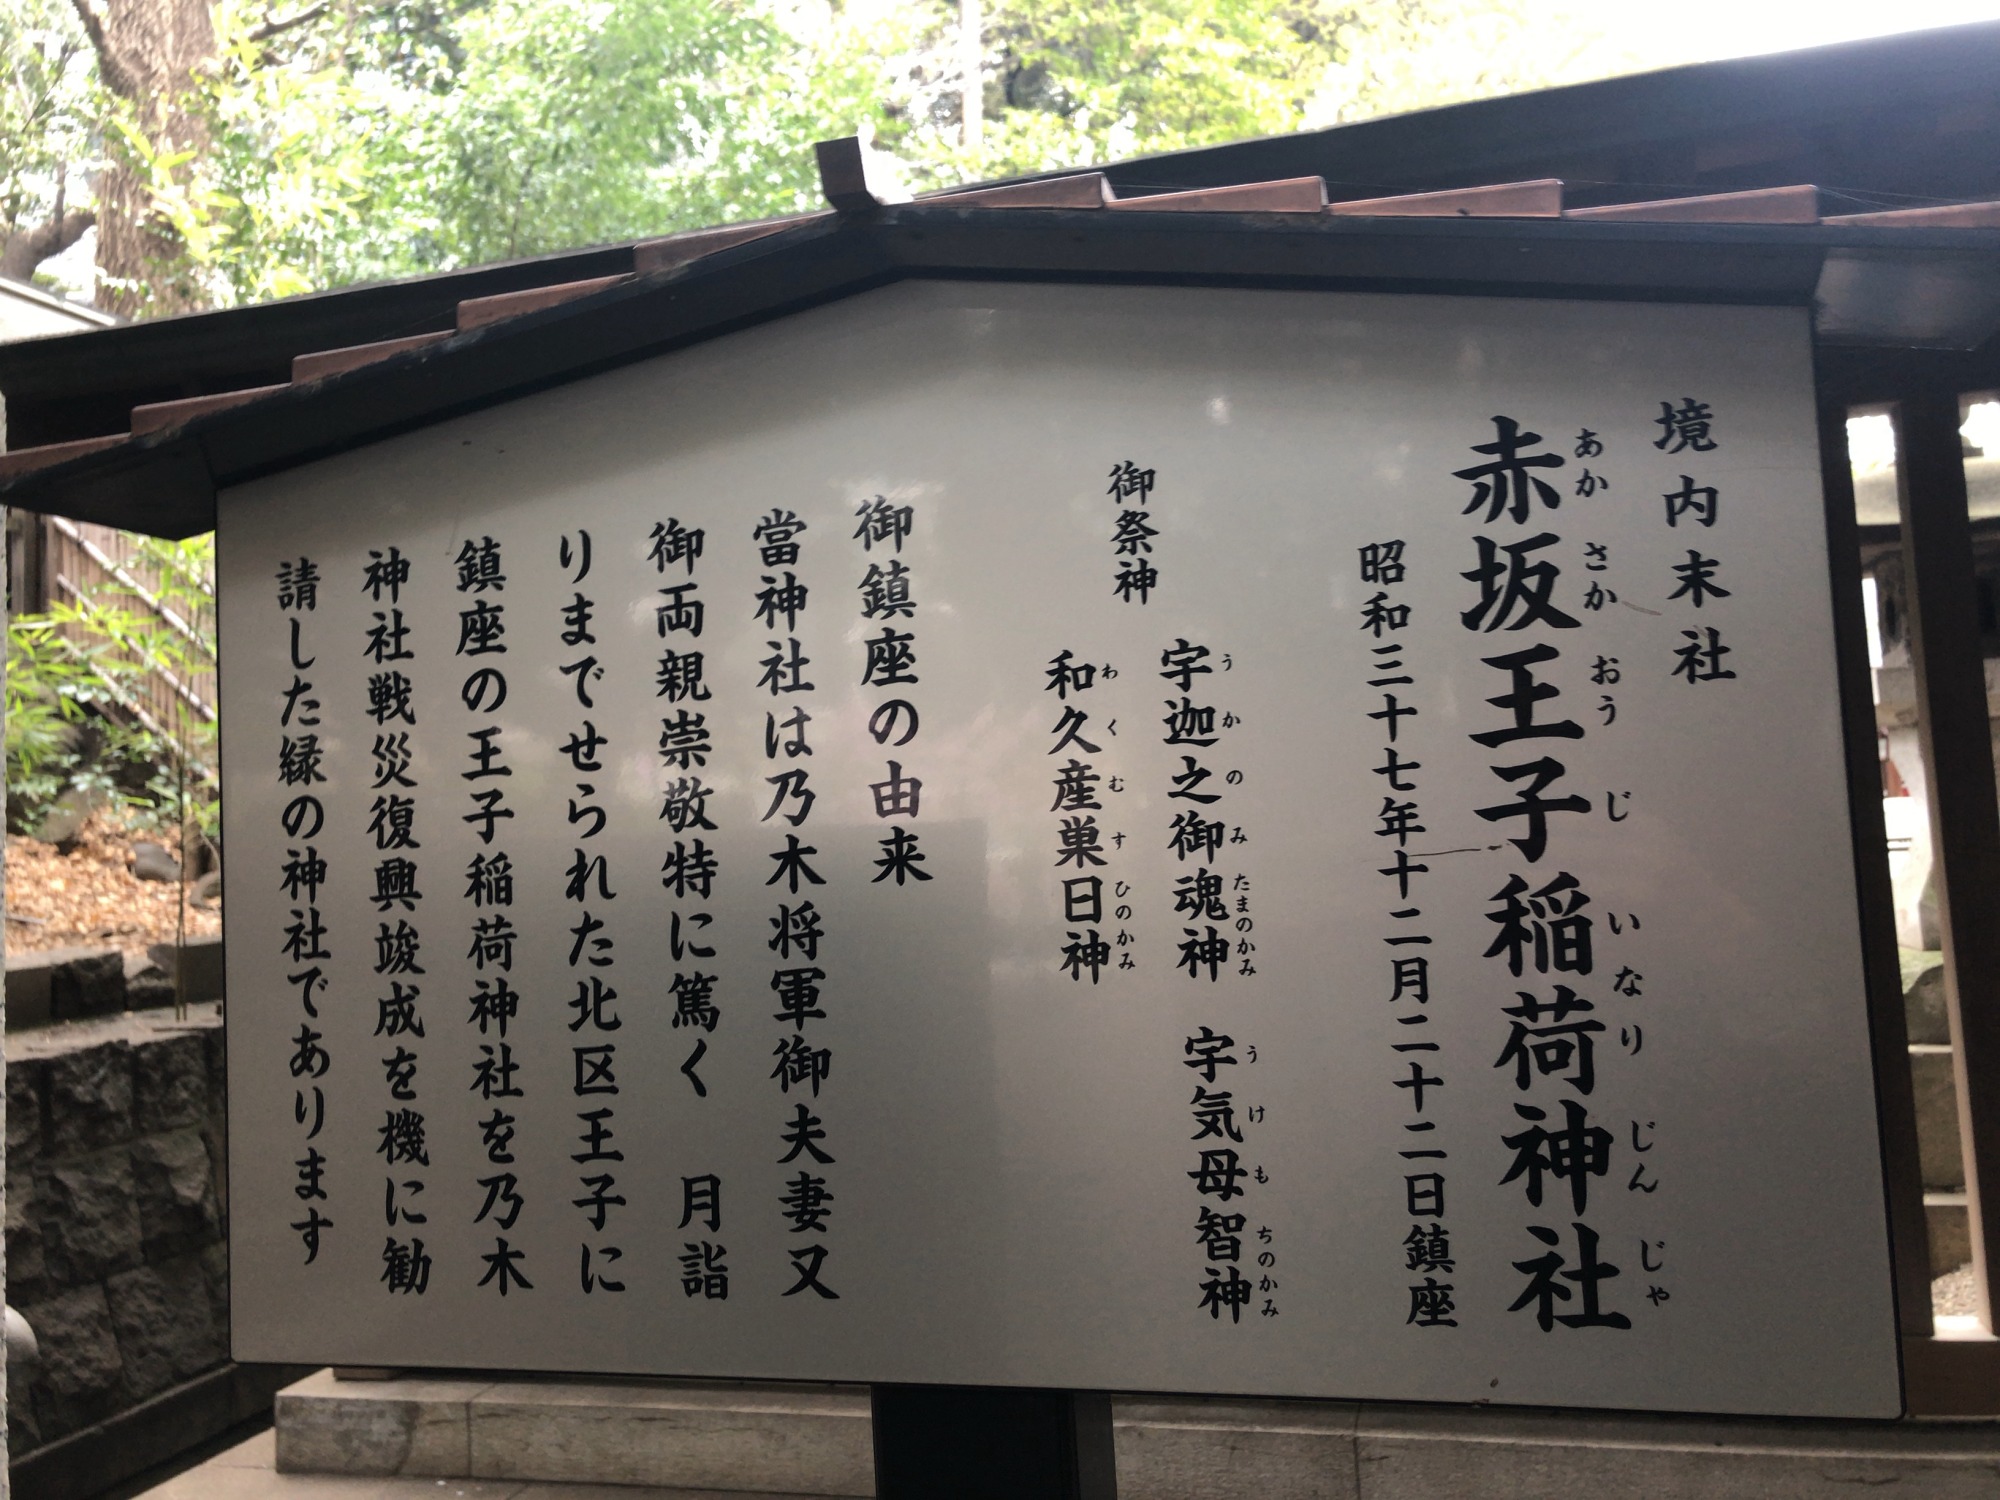 境内末社
赤坂王子稲荷神社
あかさかおうじいなりじんじゃ
昭和三十七年十二月二十二日鎮座
御祭神
宇迦之御魂神 宇気母智神
うかのみたまのかみ うけもちのかみ
和久産巣日神
わくむすひのかみ
御鎮座の由来
當神社は乃木将軍御夫妻又
御両親崇敬特に篤く 月詣
りまでせられた北区王子に
鎮座の王子稲荷神社を乃木
神社戦災復興竣成を機に勧
請した縁の神社であります